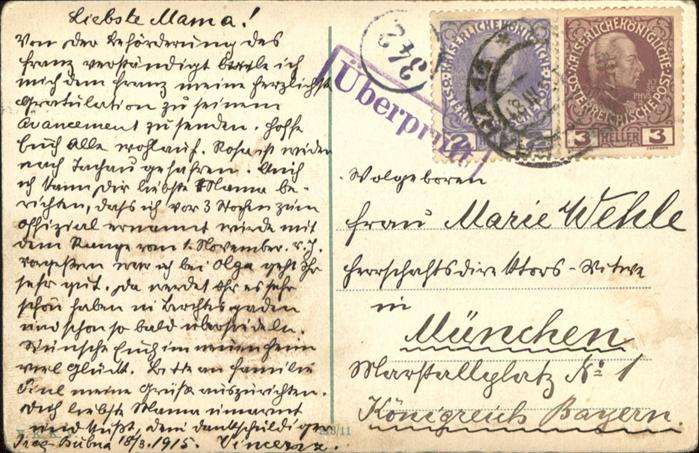 Liebste Mama!
Von der Beförderung des
Franz verständigt beeile ich
mich dem Franz meine herzlichste
Gratulation zu seinem
Avancement zu senden. Hoffe
Euch Alle wohlauf. Rosa ist wieder
nach Tachau gefahren. Auch
ich kann Dir liebste Mama be-
richten, daß ich vor 3 Wochen zum
Offizial ernannt wurde mit
dem Range vom 1. November v. J.
Vorgestern war ich bei Olga geht ihr
sehr gut. Da werdet Ihr es sehr
schön haben in Berchtesgaden
und schon so bald übersiedeln.
Wünsche Euch im neuen Heim
viel Glück. Bitte an Familie
meine Grüße auszurichten.
Dich liebste Mama umarmt
und küßt, Dein dankschuldiger
Bubna 18/3. 1915. Vincenz.
342
Überprüft
KAISERLICHE KÖNIGLICHE
ÖSTERREICHISCHE POST
2 2
KAISERLICHE KÖNIGLICHE
ÖSTERREICHISCHE POST
3 HELLER 3
Wolgeboren
Frau Marie Wehle
Herrschaftsdirektors-Witwe
in
München
Marstallplatz No 1
Königreich Bayern.